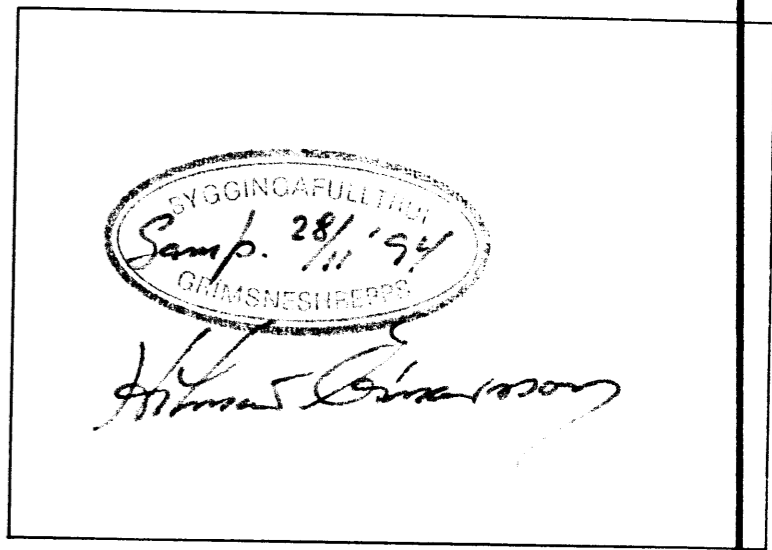 BYGGINGAFULLTRÚI
Samp. 28/11 '94
GRÍMSNESHREPPS
Hilmar Einarsson